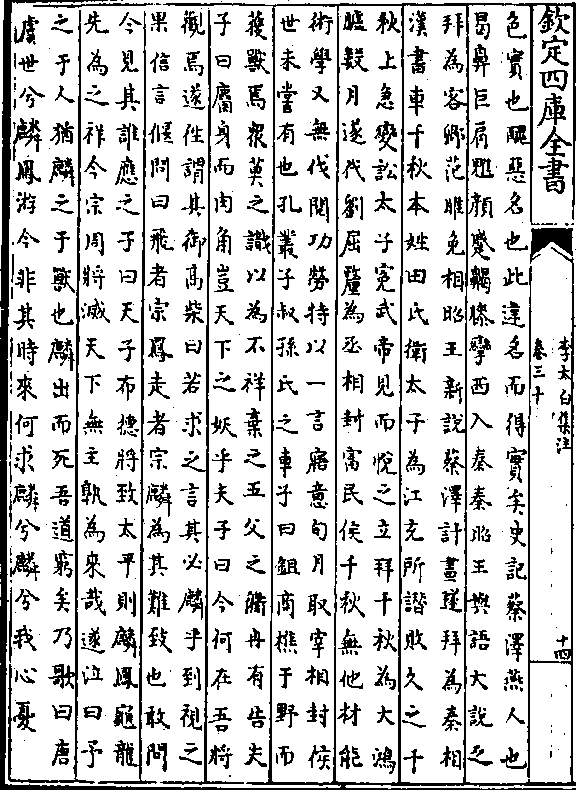 欽定四庫全書
李太白集注
卷三十
十四
色實也醜惡名也此違名而得實矣史記蔡澤燕人也
曷鼻巨肩魋顔蹙齃膝攣西入秦秦昭王與語大說之
拜為客卿范雎免相昭王新說蔡澤計畫遂拜為秦相
漢書車千秋本姓田氏衛太子為江充所譖敗久之千
秋上急變訟太子寃武帝見而悅之立拜千秋為大鴻
臚數月遂代劉屈氂為丞相封富民侯千秋無他材能
術學又無伐閱功勞特以一言寤意旬月取宰相封侯
世未嘗有也孔叢子叔孫氏之車子曰鉏商樵于野而
獲獸焉衆莫之識以為不祥棄之五父之衢冉有告夫
子曰麕身而肉角豈天下之妖乎夫子曰今何在吾將
觀焉遂往謂其御高柴曰若求之言其必麟乎到視之
果信言偃問曰飛者宗鳳走者宗麟為其難致也敢問
今見其誰應之子曰天子布德將致太平則麟鳳龜龍
先為之祥今宗周將滅天下無主孰為來哉遂泣曰予
之于人猶麟之于獸也麟出而死吾道窮矣乃歌曰唐
虞世兮麟鳳游今非其時來何求麟兮麟兮我心憂